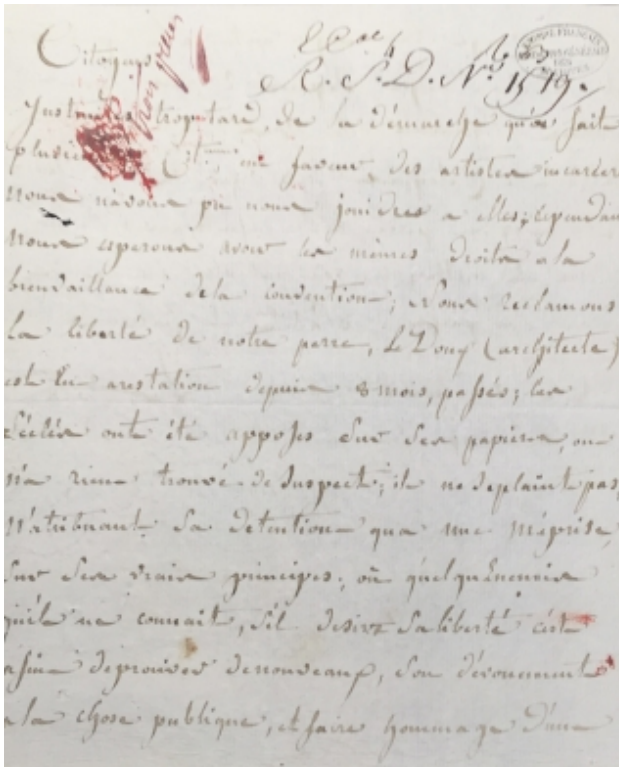 Citoyens
R. S. D. No. 1519.
trop tard, de la démarche qu'on fait
Cit.nes en faveur, des artistes incarcer
nous navons pu nous joindres a elles; cependan
nous esperons avoir les mêmes droits a la
bienvaillance dela convention; Nous reclamons
la liberté de notre perre, Le Doux (architecte)
est en arestation depuis 8 mois, passés; les
scélés ont été apposes sur ses papiers, on
n'a rien trouvé de suspect; il ne se plaint pas,
n'atribuant sa detention qua une méprise,
sur ses vrais principes; ou quelqu'Enemis
quil ne connait, s'il desire sa liberté c'est
afin de prouver denouveaux, son dévouement
a la chose publique, et faire hommage d'une